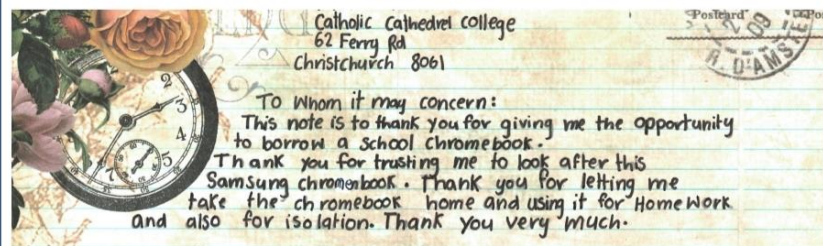 Catholic Cathedrel College
62 Ferry Rd
Christchurch 8061
Postcard
To whom it may concern:
This note is to thank you for giving me the opportunity
to borrow a school Chromebook.
Thank you for trusting me to look after this
Samsung chromenbook. Thank you for letting me
take the chromebook home and using it for HomeWork
and also for isolation. Thank you very much.
2 09
R. D'AMSTE
2
3
4
5
7